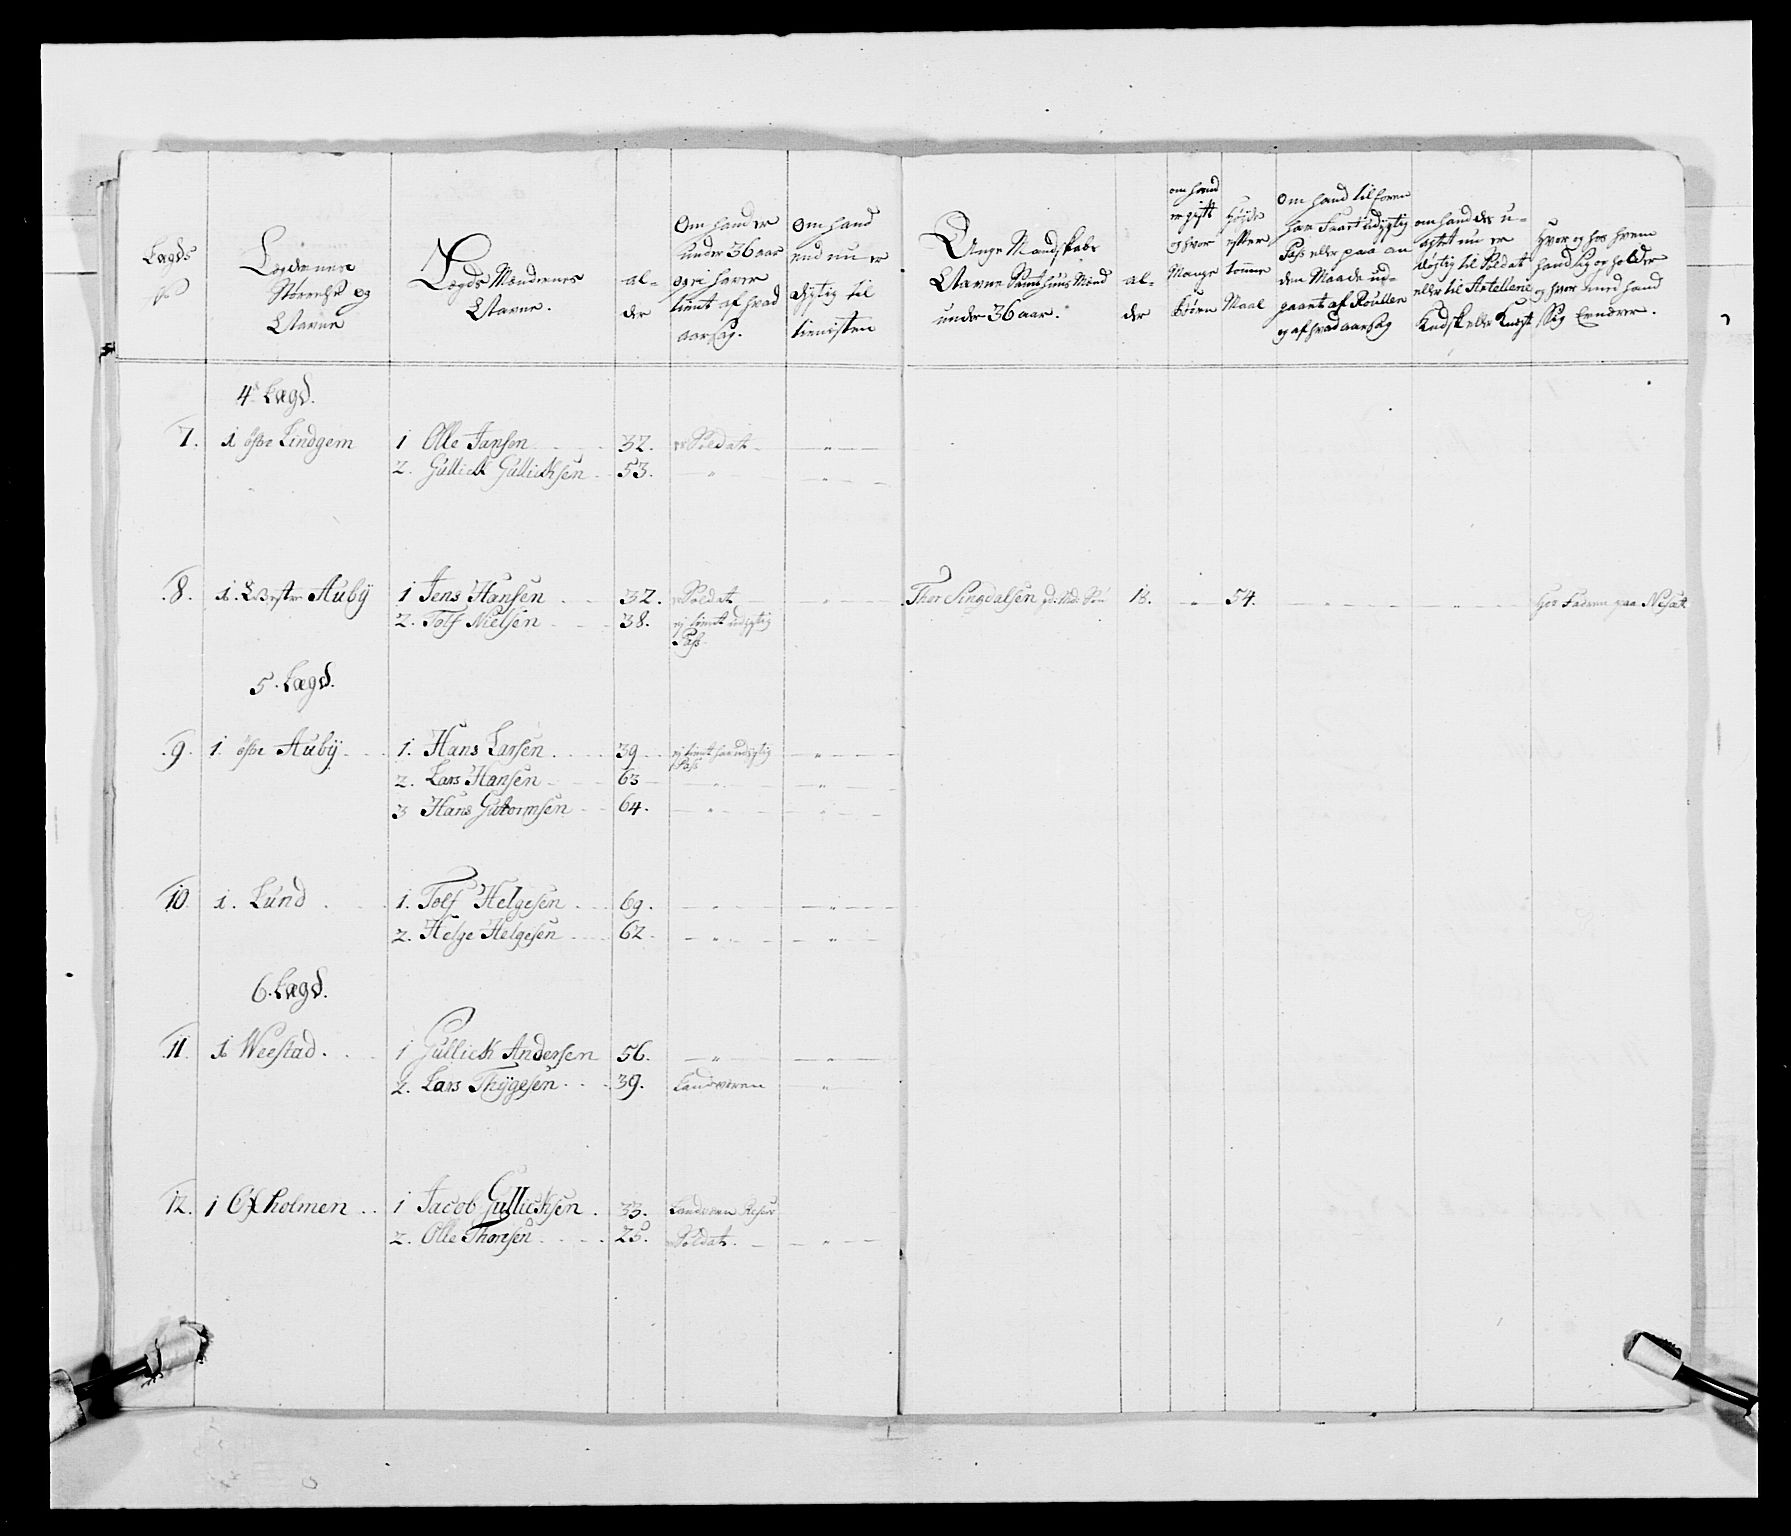 Lægds
No
Lægdernes
Størrelse og
Navne
Lægds Mændenes
Navne.
al-
der
Om hand er
under 36 aar
og ei haver
tient af hvad
aarsag.
Om hand
end nu er
dygtig til
tienisten
Unge Mandskabs
Navne Samt huus Mænd
under 36 aar.
al-
der
om hand
er gift
og hvor
Mange
børen
Høyde
efter
tomme
Maal
Om hand tilforen
har faaet udygtig
Pass eller paa an
den Maade ud-
gaaet af Roullen
og af hvad aarsag
om hand des u-
agtet nu er
døgtig til Soldat
eller til Artellerie
Kudsk eller Knægt
Hvor og hos hvem
hand sig op holder
og hvor med hand
Sig Ernærer.
4 Lægd.
7. 1 östre Lindgem 1 Olle Jansen 32. er Soldat
2. Gullick Gullichsen 53.
8. 1. Westre Auby 1 Jens Hansen 32. Soldat Thor Singdalsen 18. 54. Hos Faderen paa Nesset
2. Tolf Nielsen 38. ej tient udygtig
Pass
5. Lægd.
9. 1. östre Auby 1. Hans Larsen 39 ej tient har udygtig
Pass
2. Lars Hansen 63
3 Hans Gutormsen 64.
10. 1. Lund 1. Tolf Helgesen 69.
2. Helge Helgesen 62.
6. Lægd.
11. 1 Weestad 1 Gullick Andersen 56.
2. Lars Thygesen 39. Landværen
12. 1 Oxholmen 1 Jacob Gullichsen 33. Landværn Reserv
2. Olle Thorsen 25. Soldat